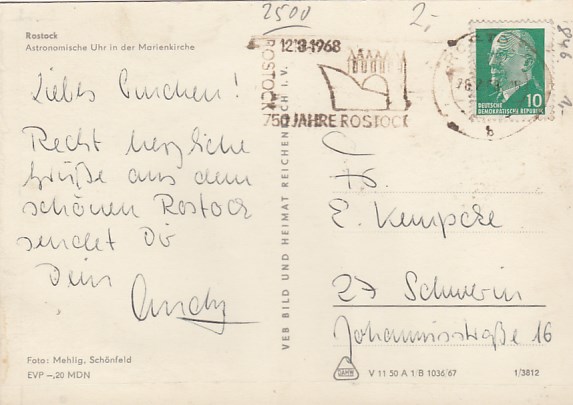 2500
2,-
846
Rostock
Astronomische Uhr in der Marienkirche
12.8.1968
ROSTOCK
750 JAHRE ROSTOCK
b
10
DEUTSCHE
DEMOKRATISCHE REPUBLIK
Recht herzliche
Grüße aus dem
schönen Rostock
sendet Dir
Dein
Andy
E. Kempcke
27 Schwerin
Johannisstraße 16
VEB BILD UND HEIMAT REICHENBACH I. V.
Foto: Mehlig, Schönfeld
EVP –,20 MDN
V 11 50 A 1/B 1036/67
1/3812